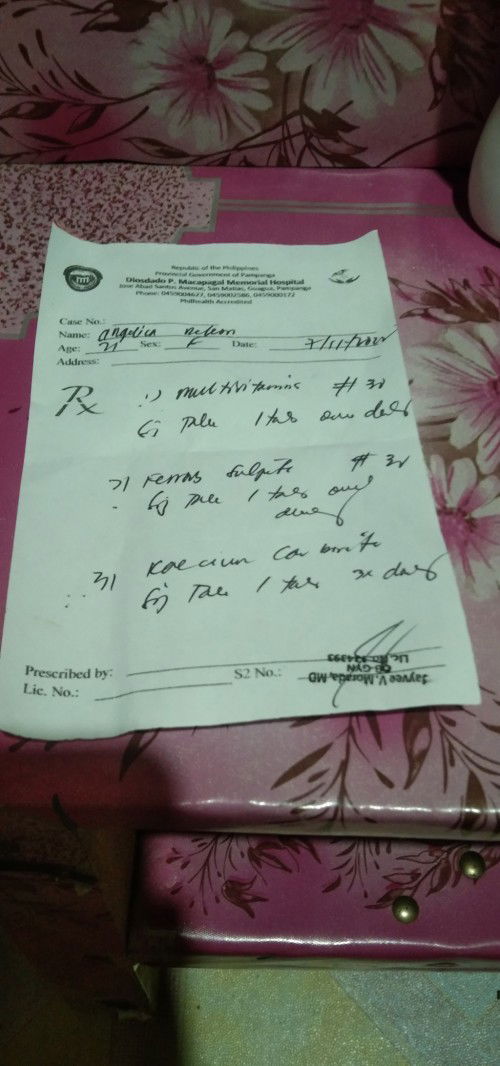 Republic of the Philippines
Provincial Government of Pampanga
Diosdado P. Macapagal Memorial Hospital
Jose Abad Santos Avenue, San Matias, Guagua, Pampanga
Phone: 0459004677, 0459002586, 0459000172
Philhealth Accredited
Case No.:
Name: Angelica
Age: 21 Sex: F Date: 7/11/2022
Address:
Rx
1) Multivitamins # 30
Sig Take 1 tab once daily
2) Ferrous Sulfate # 30
Sig Take 1 tab once
daily
3) Calcium Carbonate
Sig Take 1 tab 3x daily
Prescribed by:
S2 No.:
Lic. No.:
Jayvee V. Morada, MD
OB-GYN